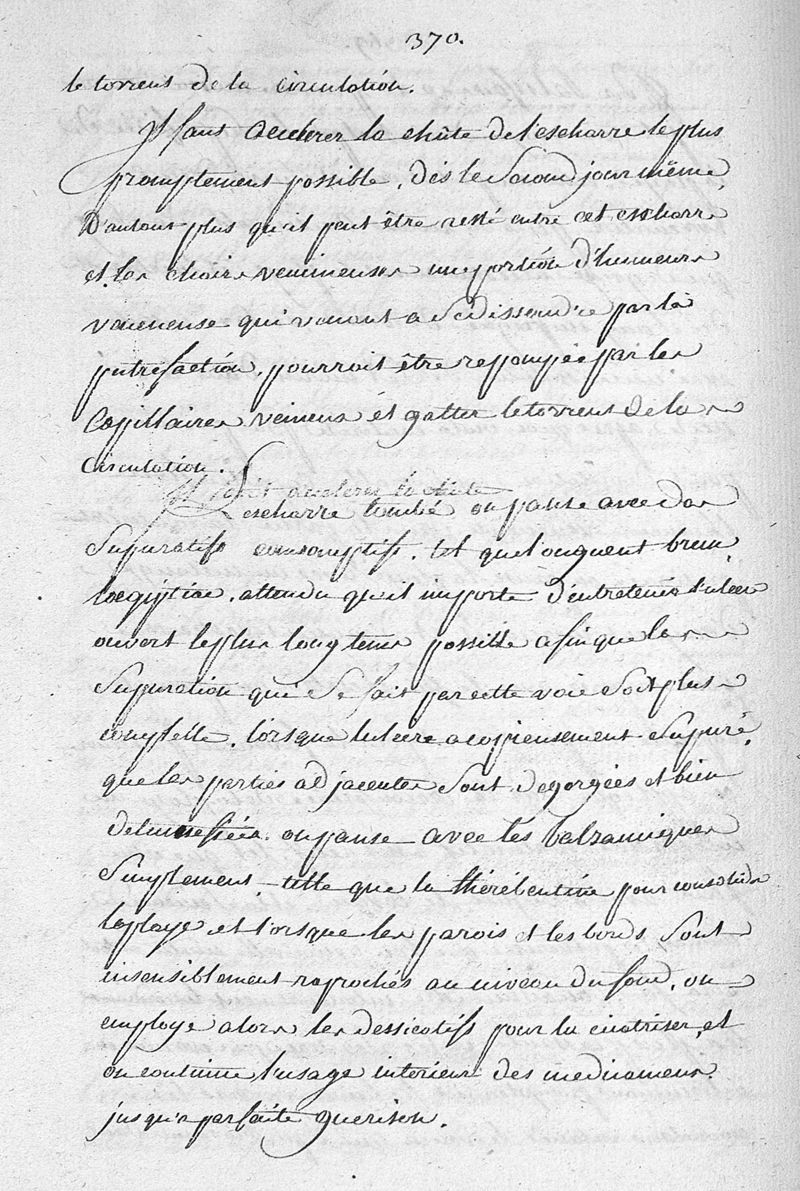 370.
le torrent de la circulation.
Il faut accelerer la chûte de l'escharre le plus
promptement possible, dès le second jour même,
D'autant plus qu'il peut être resté entre cet escharre
et les chairs venimeuses une portion d'humeurs
veneneuse qui venant a se dissoudre par la
putrefaction, pourroit être repompée par les
Capillaires veineux et gatter le torrent de la
circulation.
Il faut accelerer la chute
L'escharre tombé on panse avec des
Supuratifs consomptifs, tel que l'onguent brun,
l'oegiptiac, attendu qu'il importe d'entretenir l'ulcere
ouvert le plus longtems possible afin que la
Supuration qui se fait par cette voie soit plus
complette, lorsque l'ulcere a copieusement supuré,
que les parties adjacentes sont degorgées et bien
detumefiées, on panse avec les balzamiques
Simplement, telle que la thérébentine pour consolider
la playe et lorsque les parois et les bords sont
insensiblement raprochés au niveau du fond, on
employe alors les dessicatifs pour la cicatriser, et
on continue l'usage interieur des medicamens
jusqu'a parfaite guerison.